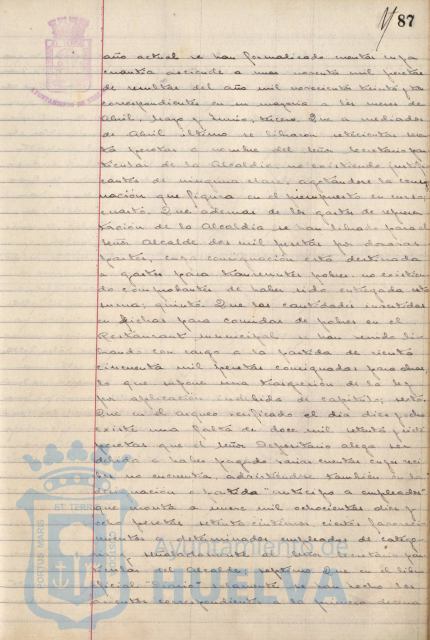 87
año actual se han formalizado cuentas cuya
cuantía asciende a mas noventa mil pesetas
de resultas del año mil novecientos treinta y
correspondientes en su mayoría a los meses de
Abril, Mayo y Junio; tercero. Que a mediados
de Abril último se libraron setecientas
pesetas a nombre del señor Secretario par-
ticular de la Alcaldía, no existiendo justifi-
cantes de ninguna clase, agotándose la consig-
nación que figura en el presupuesto en curso;
cuarto. Que ademas de los gastos de represen-
tación de la Alcaldía, se han librado para el
señor Alcalde dos mil pesetas por doceavas
partes, cuya consignación está destinada
a gastos para transeuntes pobres, no existien-
do comprobantes de haber sido entregada esta
suma; quinto. Que las cantidades invertidas
en fichas para comidas de pobres en el
Restaurant municipal, se han venido li-
brando con cargo a la partida de ciento
cincuenta mil pesetas consignadas para obras,
lo que supone una trasgresión de la ley
por aplicación indebida de capítulo; sexto.
Que en el arqueo verificado el día diez pdo
existe una falta de doce mil
pesetas que el señor Depositario alega ser
debida a haber pagado varias cuentas cuyo reci-
bo no encuentra, advirtiéndose también en la
denominación o partida "anticipo a empleados"
que monta a nueve mil ochocientas diez y
ocho pesetas setenta céntimos ciertos favoreci-
mientos a determinados empleados de catego-
ría y señaladamente al Secretario par-
ticular del Alcalde; septimo. Que en el libro
oficial "Diario" solamente se han hecho los
asientos correspondientes a la primera decena
AYUNTAMIENTO DE
PORTUS MARIS
ET TERRAE
Ayuntamiento de
HUELVA